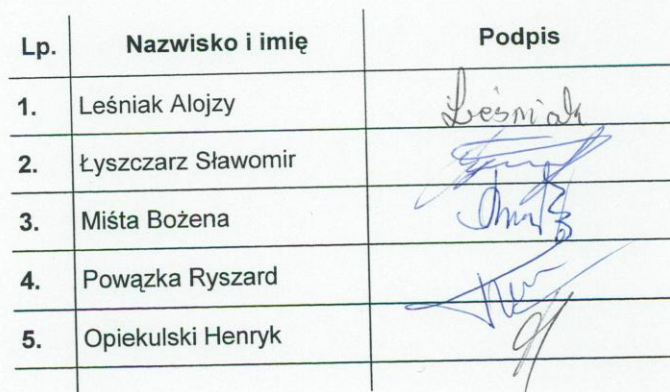 Lp. Nazwisko i imię Podpis
1. Leśniak Alojzy Leśniak
2. Łyszczarz Sławomir
3. Miśta Bożena
4. Powązka Ryszard
5. Opiekulski Henryk